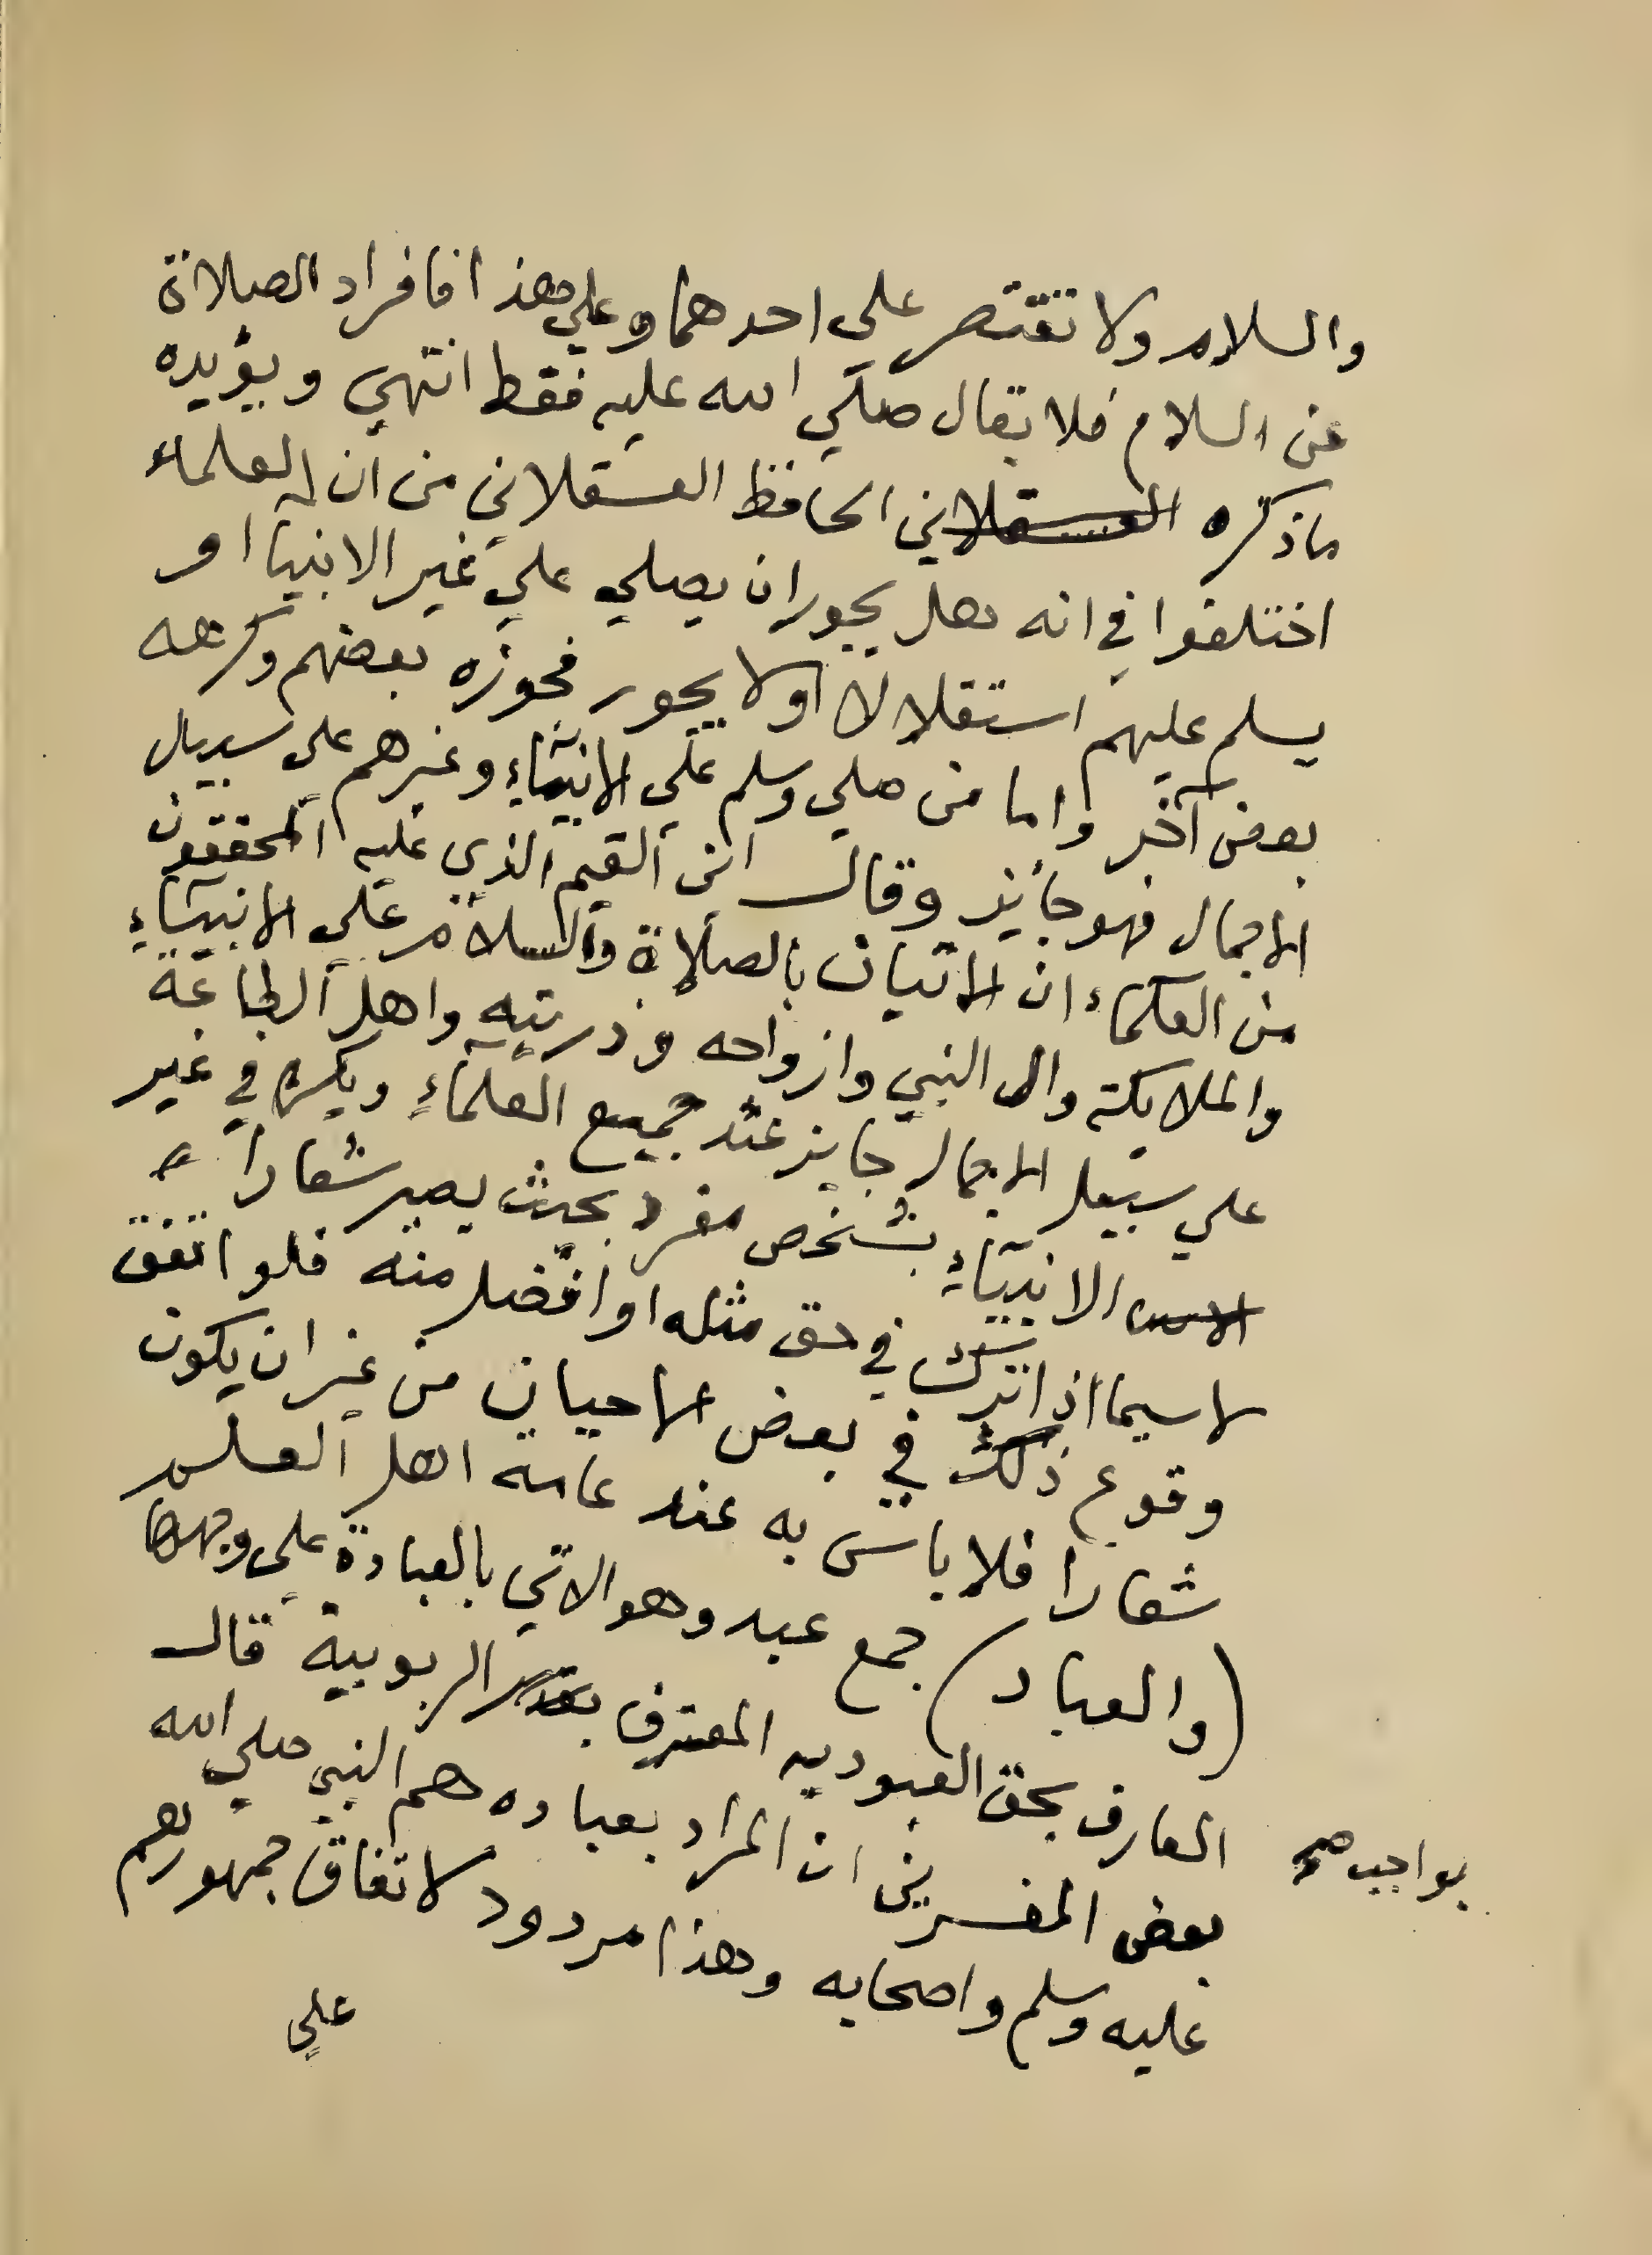 والسلام ولا تقتصر على احدهما وعلى هذا فافراد الصلاة
عن السلام فلا يقال صلي الله عليه فقط انتهي ويؤيده
ماذكره العسقلاني الحافظ العسقلاني من ان العلماء
اختلفوا في انه هل يجوز ان يصلي علي غير الانبيا او
يسلم عليهم استقلالا اولا يجوز فجوزه بعضهم وكرهه
بعض آخر واما من صلي وسلم علي الانبياء وغيرهم على سبيل
الاجمال فهو جائز وقال ابن القيم الذي عليه المحققون
من العلماء ان الاتيان بالصلاة والسلام علي الانبياء
والملايكة وال النبي وازواجه وذريته واهل الطاعة
علي سبيل الاجمال جايز عند جميع العلماء ويكره في غير
الانبياء بشخص مفرد بحيث يصير شعارا
لاسيما اذا ترك في حق مثله او افضل منه فلو اتفق
وقوع ذلك في بعض الاحيان من غير ان يكون
شعارا فلا باس به عند عامة اهل العلم
(والعباد) جمع عبد وهو الاتي بالعبادة على وجهها
العارف بحق العبوديه المعترف بقدر الربوبية قال
بواجب صح
بعض المفسرين ان المراد بعباده هم النبي صلي الله
عليه وسلم واصحابه وهذا مردود لاتفاق جمهورهم
علي